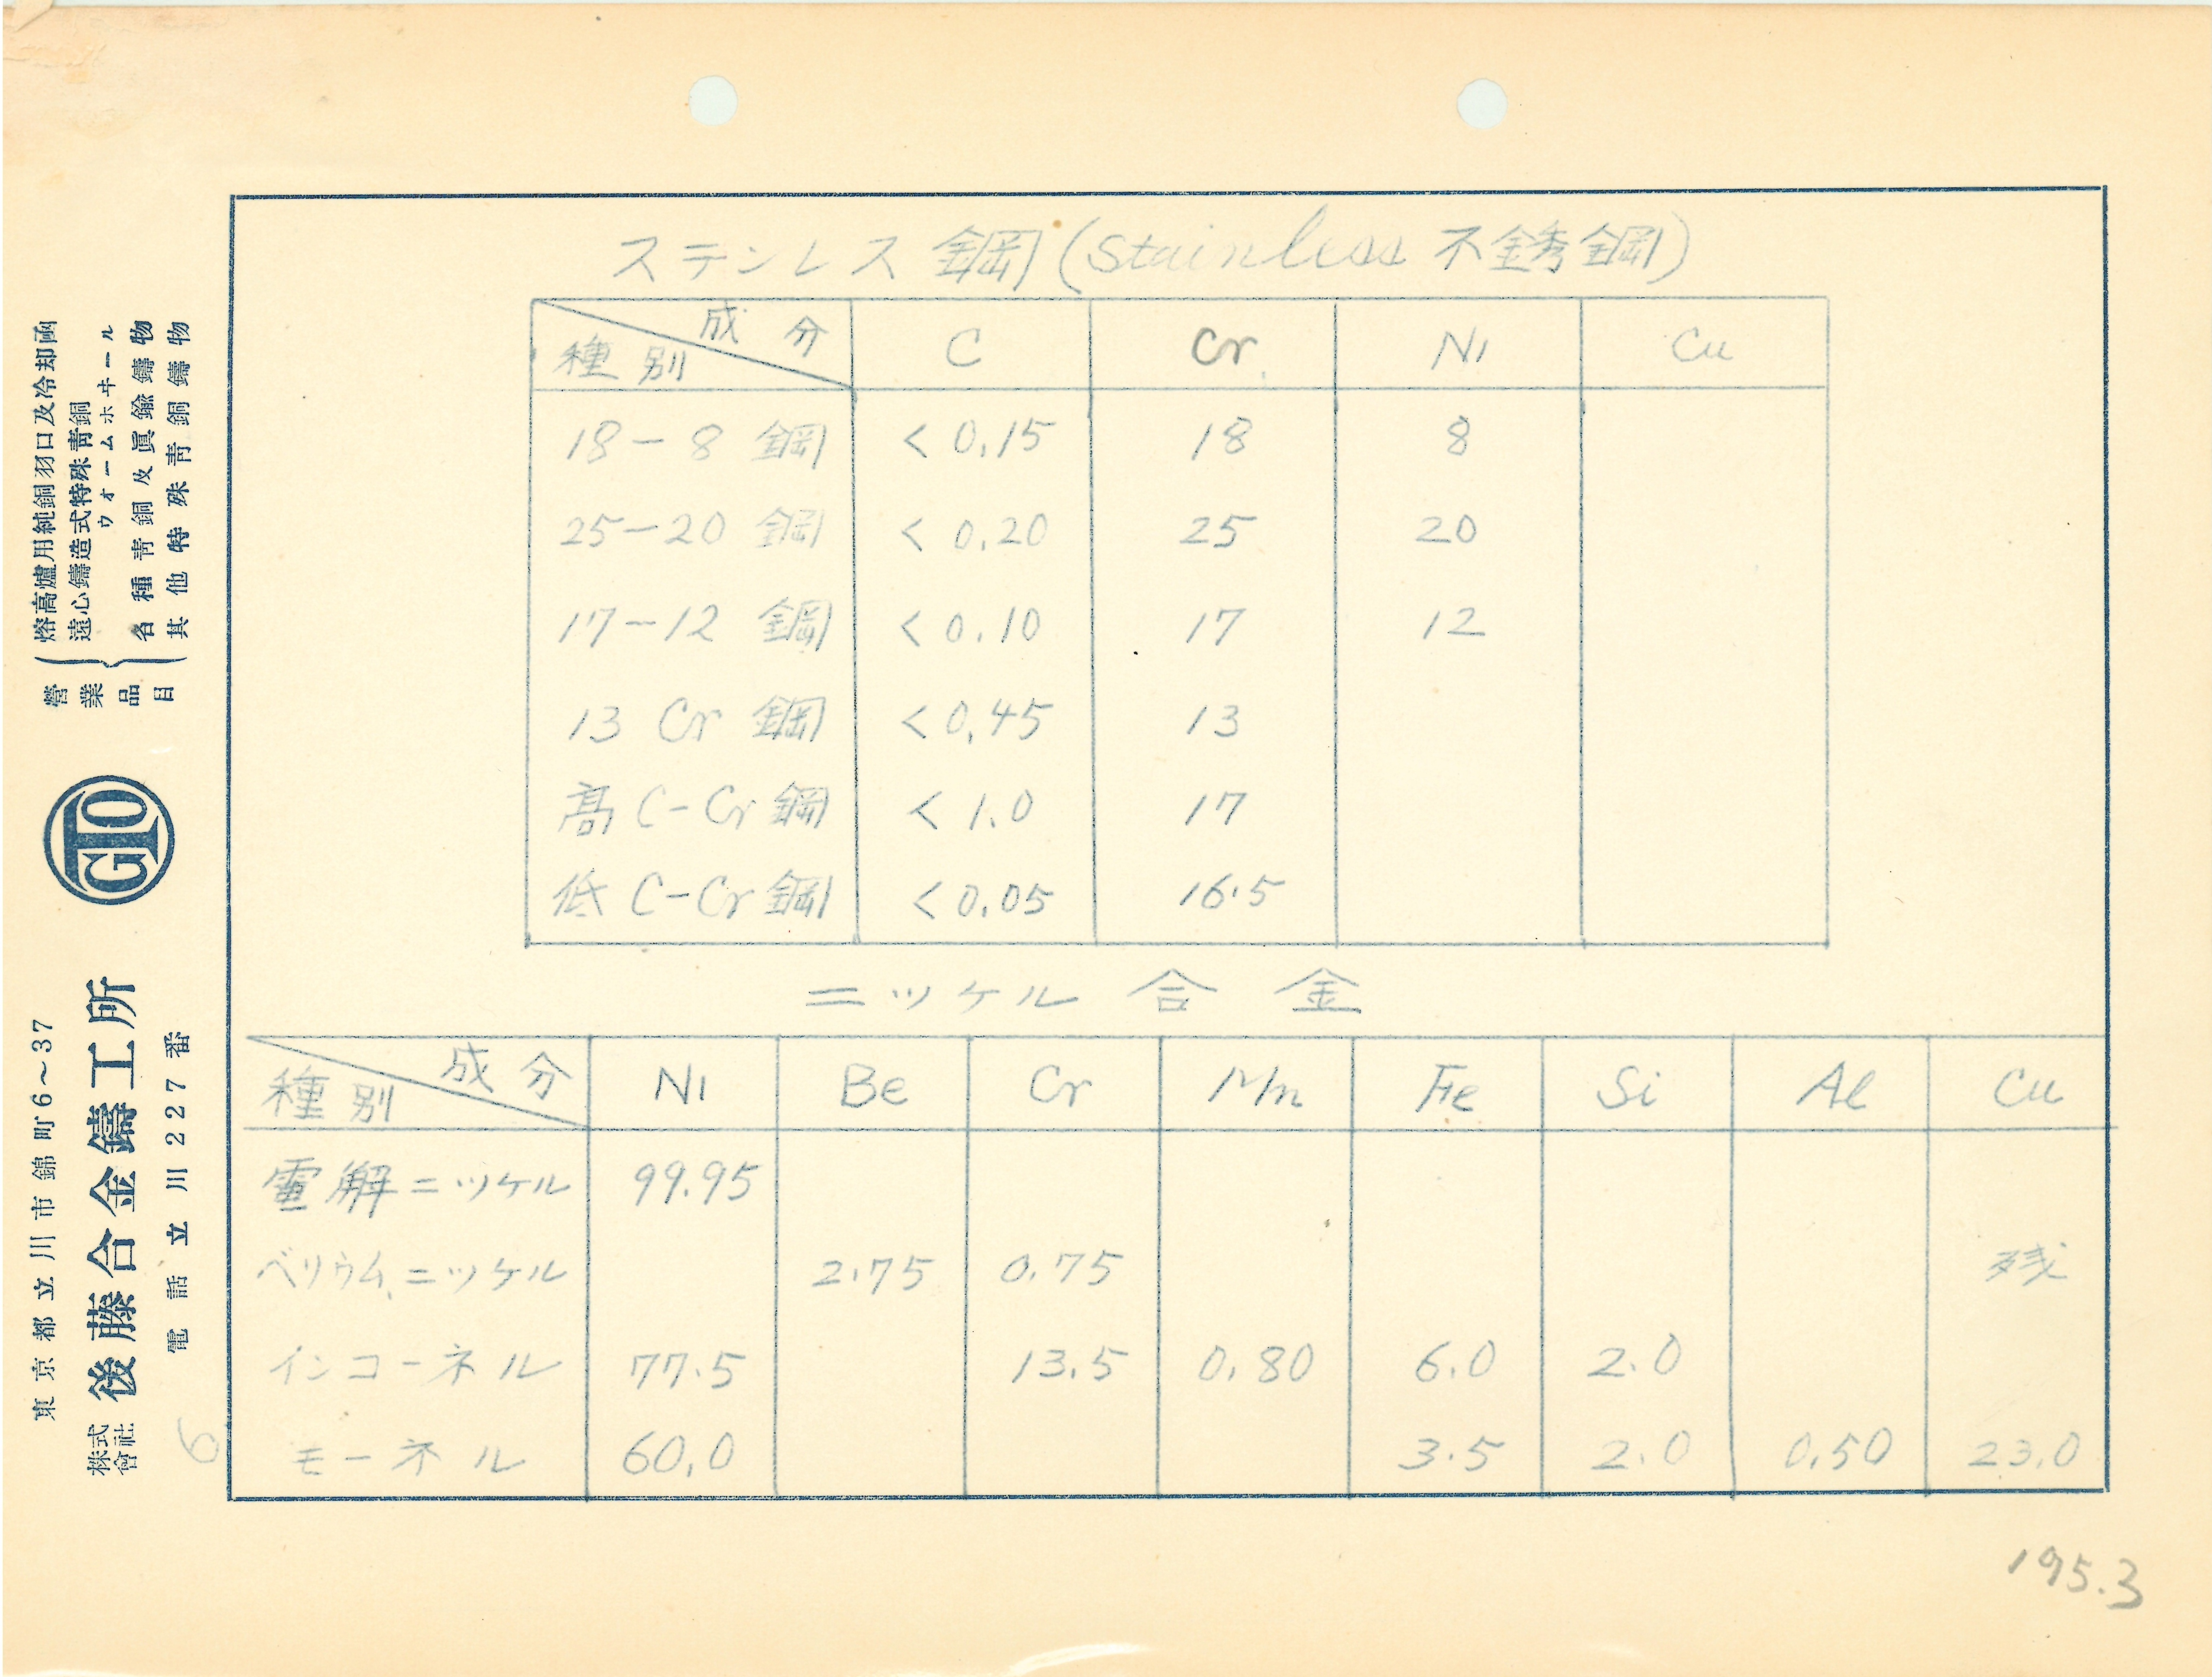 ステンレス鋼(Stainless 不銹鋼)
種別 成分 C Cr Ni Cu
18-8 鋼 <0.15 18 8
25-20 鋼 <0.20 25 20
17-12 鋼 <0.10 17 12
13 Cr 鋼 <0.45 13
高 C-Cr 鋼 <1.0 17
低 C-Cr 鋼 <0.05 16.5
ニッケル 合金
種別 成分 Ni Be Cr Mn Fe Si Al Cu
電解ニッケル 99.95
ベリウムニッケル 2.75 0.75 残
インコーネル 77.5 13.5 0.80 6.0 2.0
モーネル 60.0 3.5 2.0 0.50 23.0
195.3
營業品目
熔高爐用純銅羽口及冷却函
遠心鑄造式特殊靑銅
ウォームホヰール
各種靑銅及眞鍮鑄物
其他特殊靑銅鑄物
GTO
東京都立川市錦町6~37
株式會社 後藤合金鑄工所
電話 立川227番
6